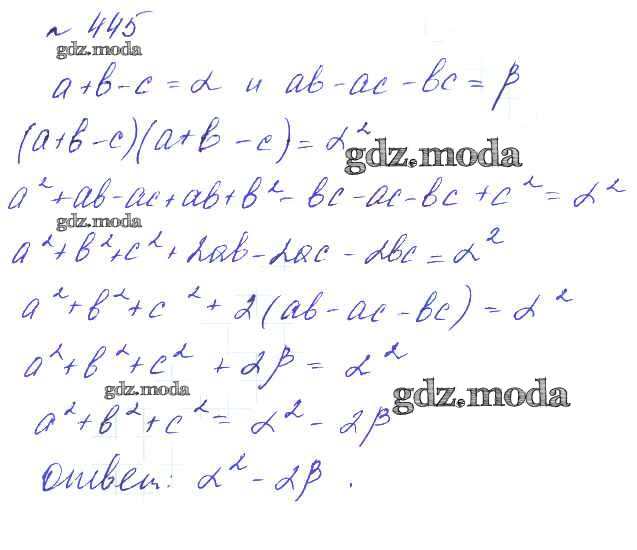 № 445
gdz.moda
a+b-c=α и ab-ac-bc=β
(a+b-c)(a+b-c)=α²
gdz.moda
a²+ab-ac+ab+b²-bc-ac-bc+c²=α²
gdz.moda
a²+b²+c²+2ab-2ac-2bc=α²
a²+b²+c²+2(ab-ac-bc)=α²
a²+b²+c²+2β=α²
gdz.moda
gdz.moda
a²+b²+c²=α²-2β
Ответ: α²-2β.